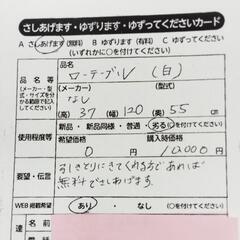 さしあげます・ゆずります・ゆずってくださいカード
A さしあげます(無料) B ゆずります(有料) C ゆずってください
(いずれかに○を付けてください)
品名等
(メーカー・型式・サイズを分かる範囲で記入してください)
(品名) ローテーブル (白)
(メーカー) なし (型式)
(高) 37 (幅) 120 (奥) 55 cm
使用程度等
新品・新品同様・普通・劣る(○を付けてください)
希望価格 0 円
購入時価格 10,000 円
要望・伝言
引きとりにきてくれる方であれば
無料でさしあげます。
WEB掲載希望 あり・なし (○を付けてください)
達